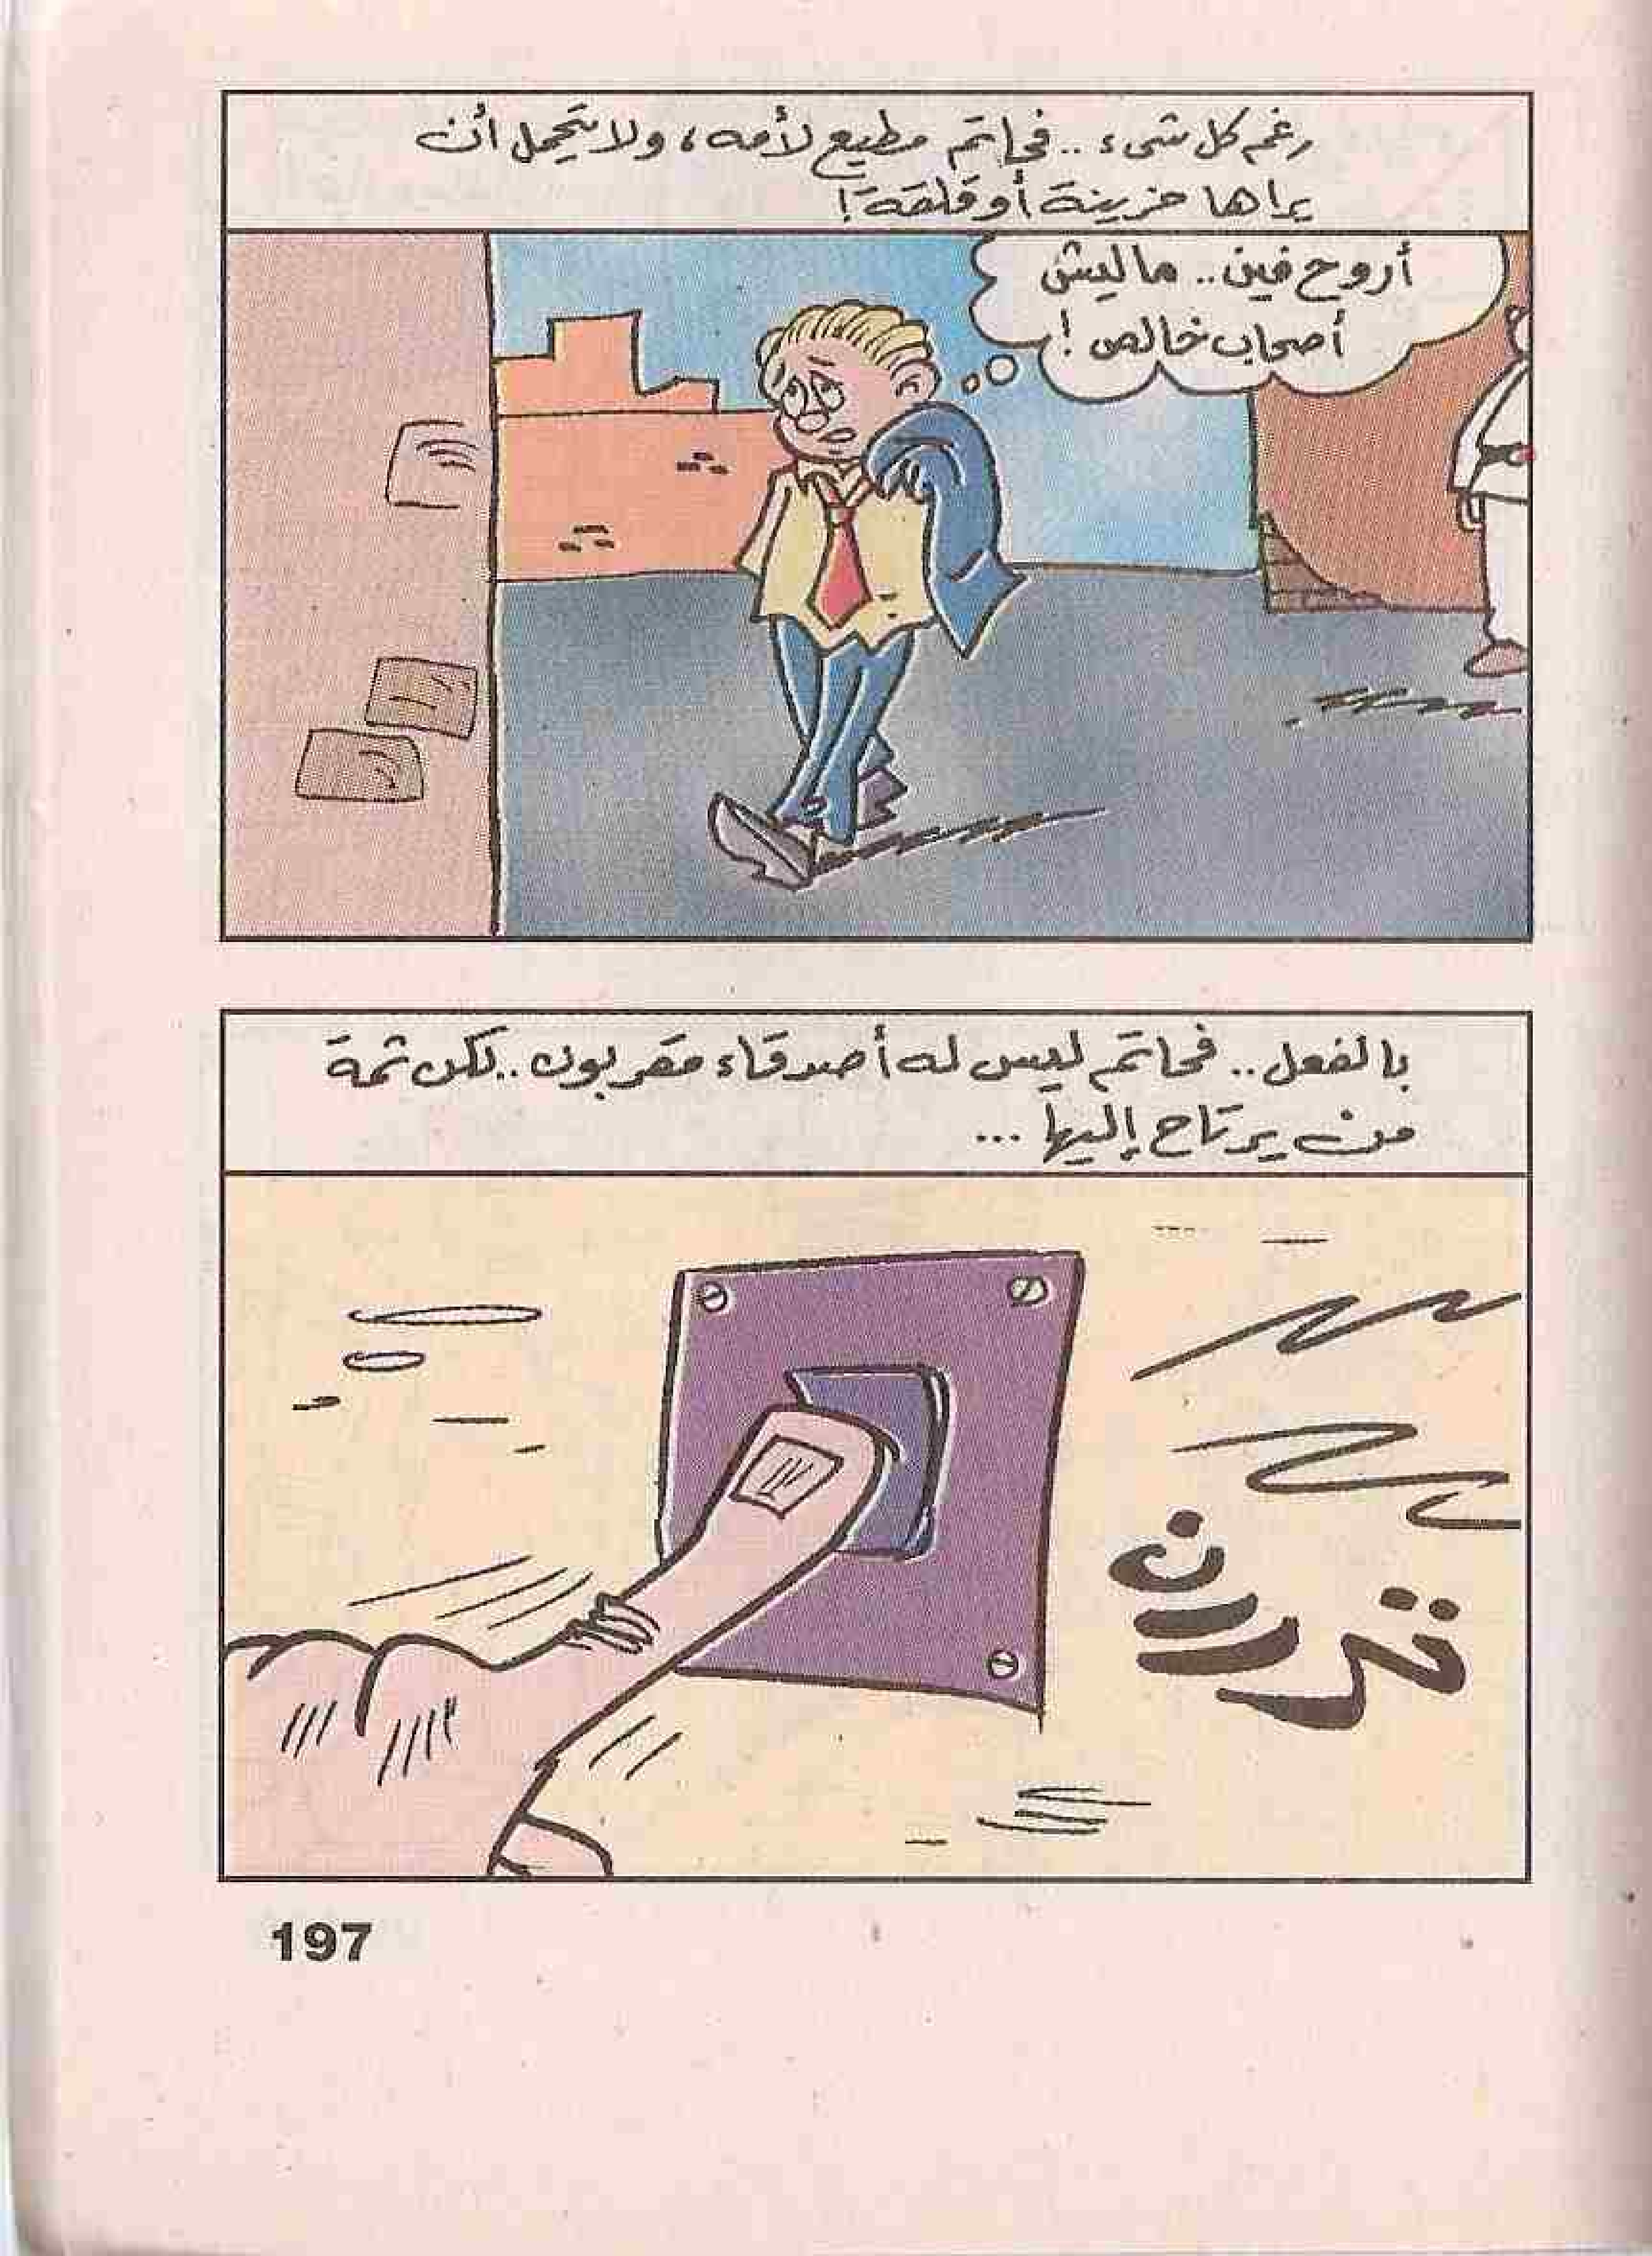 رغم كل شىء .. فحاتم مطيع لأمه، ولا يتحمل أن
يراها حزينة أو قلقة!
أروح فين.. ماليش
أصحاب خالص!
بالفعل.. فحاتم ليس له أصدقاء مقربون.. لكن ثمة
من يرتاح إليها ...
تررررن
197